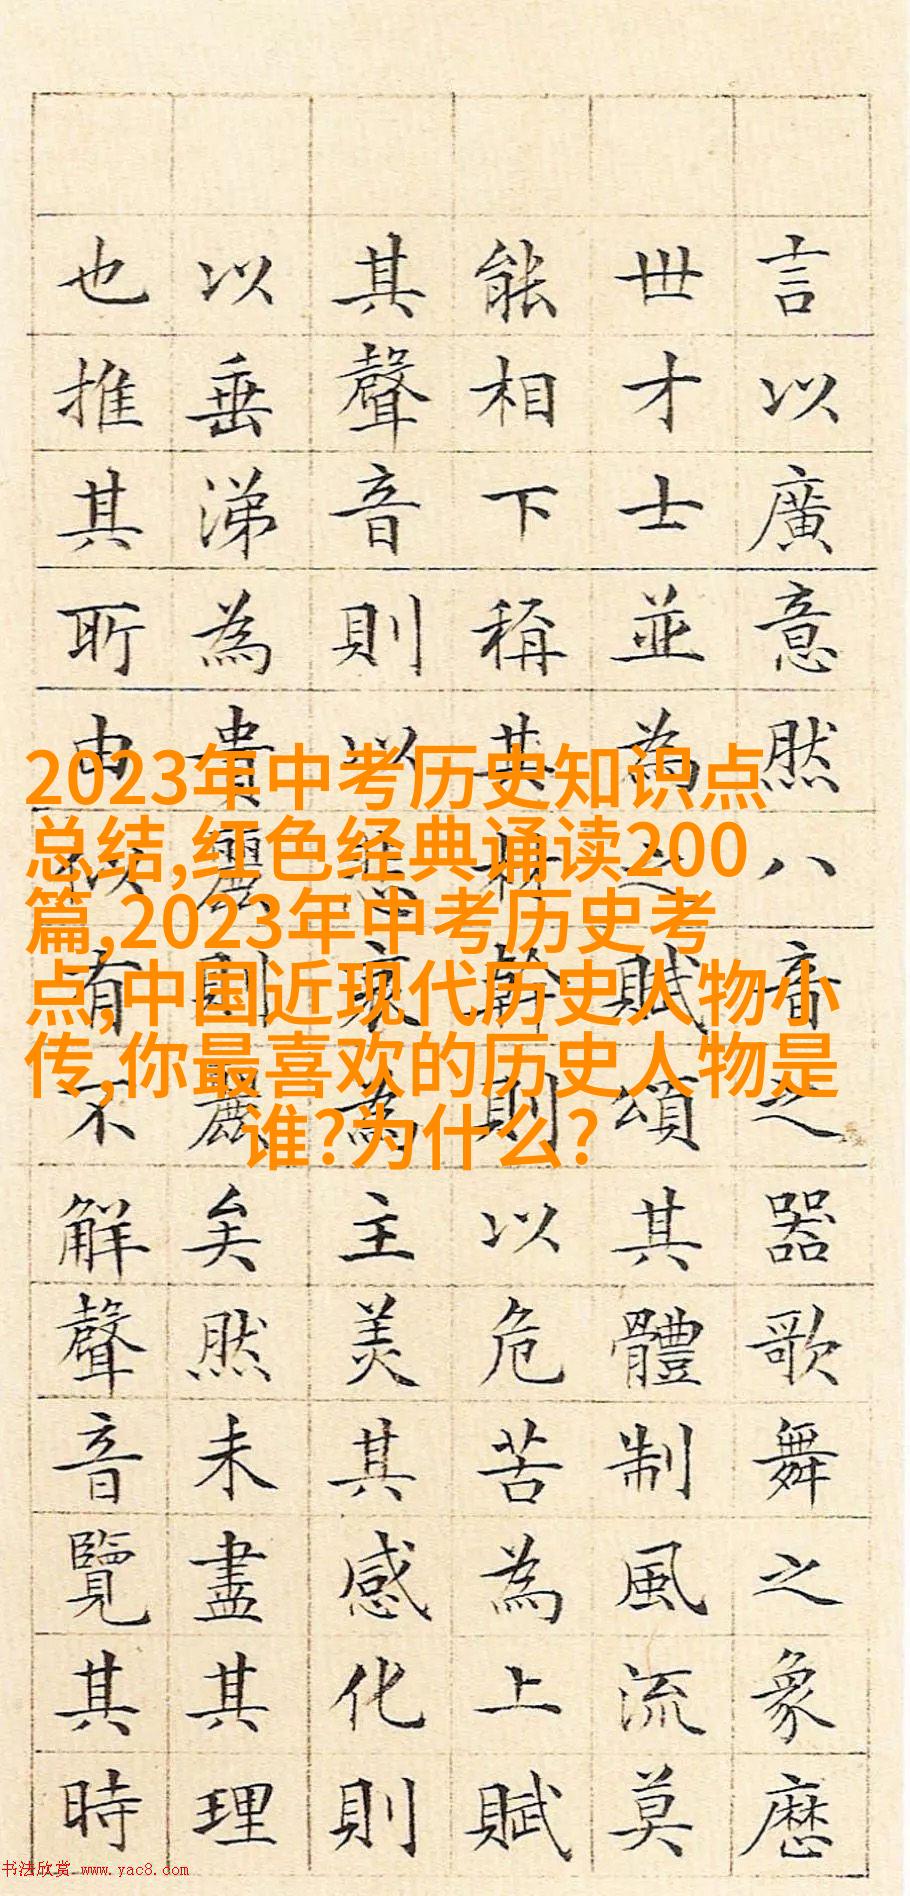 言以廣意然八音之器歌舞之象歷
世才士並為之賦頌其體制風流莫
能相下稱其材幹則以危苦為上賦
其聲音則以悲哀為主美其感化則
以垂涕為貴麗則麗矣然未盡其理
也推其所由似有不解聲音覽其時
2023年中考历史知识点
总结,红色经典诵读200
篇,2023年中考历史考
点,中国近现代历史人物小
传,你最喜欢的历史人物是
谁?为什么?
书法欣赏 www.yac8.com